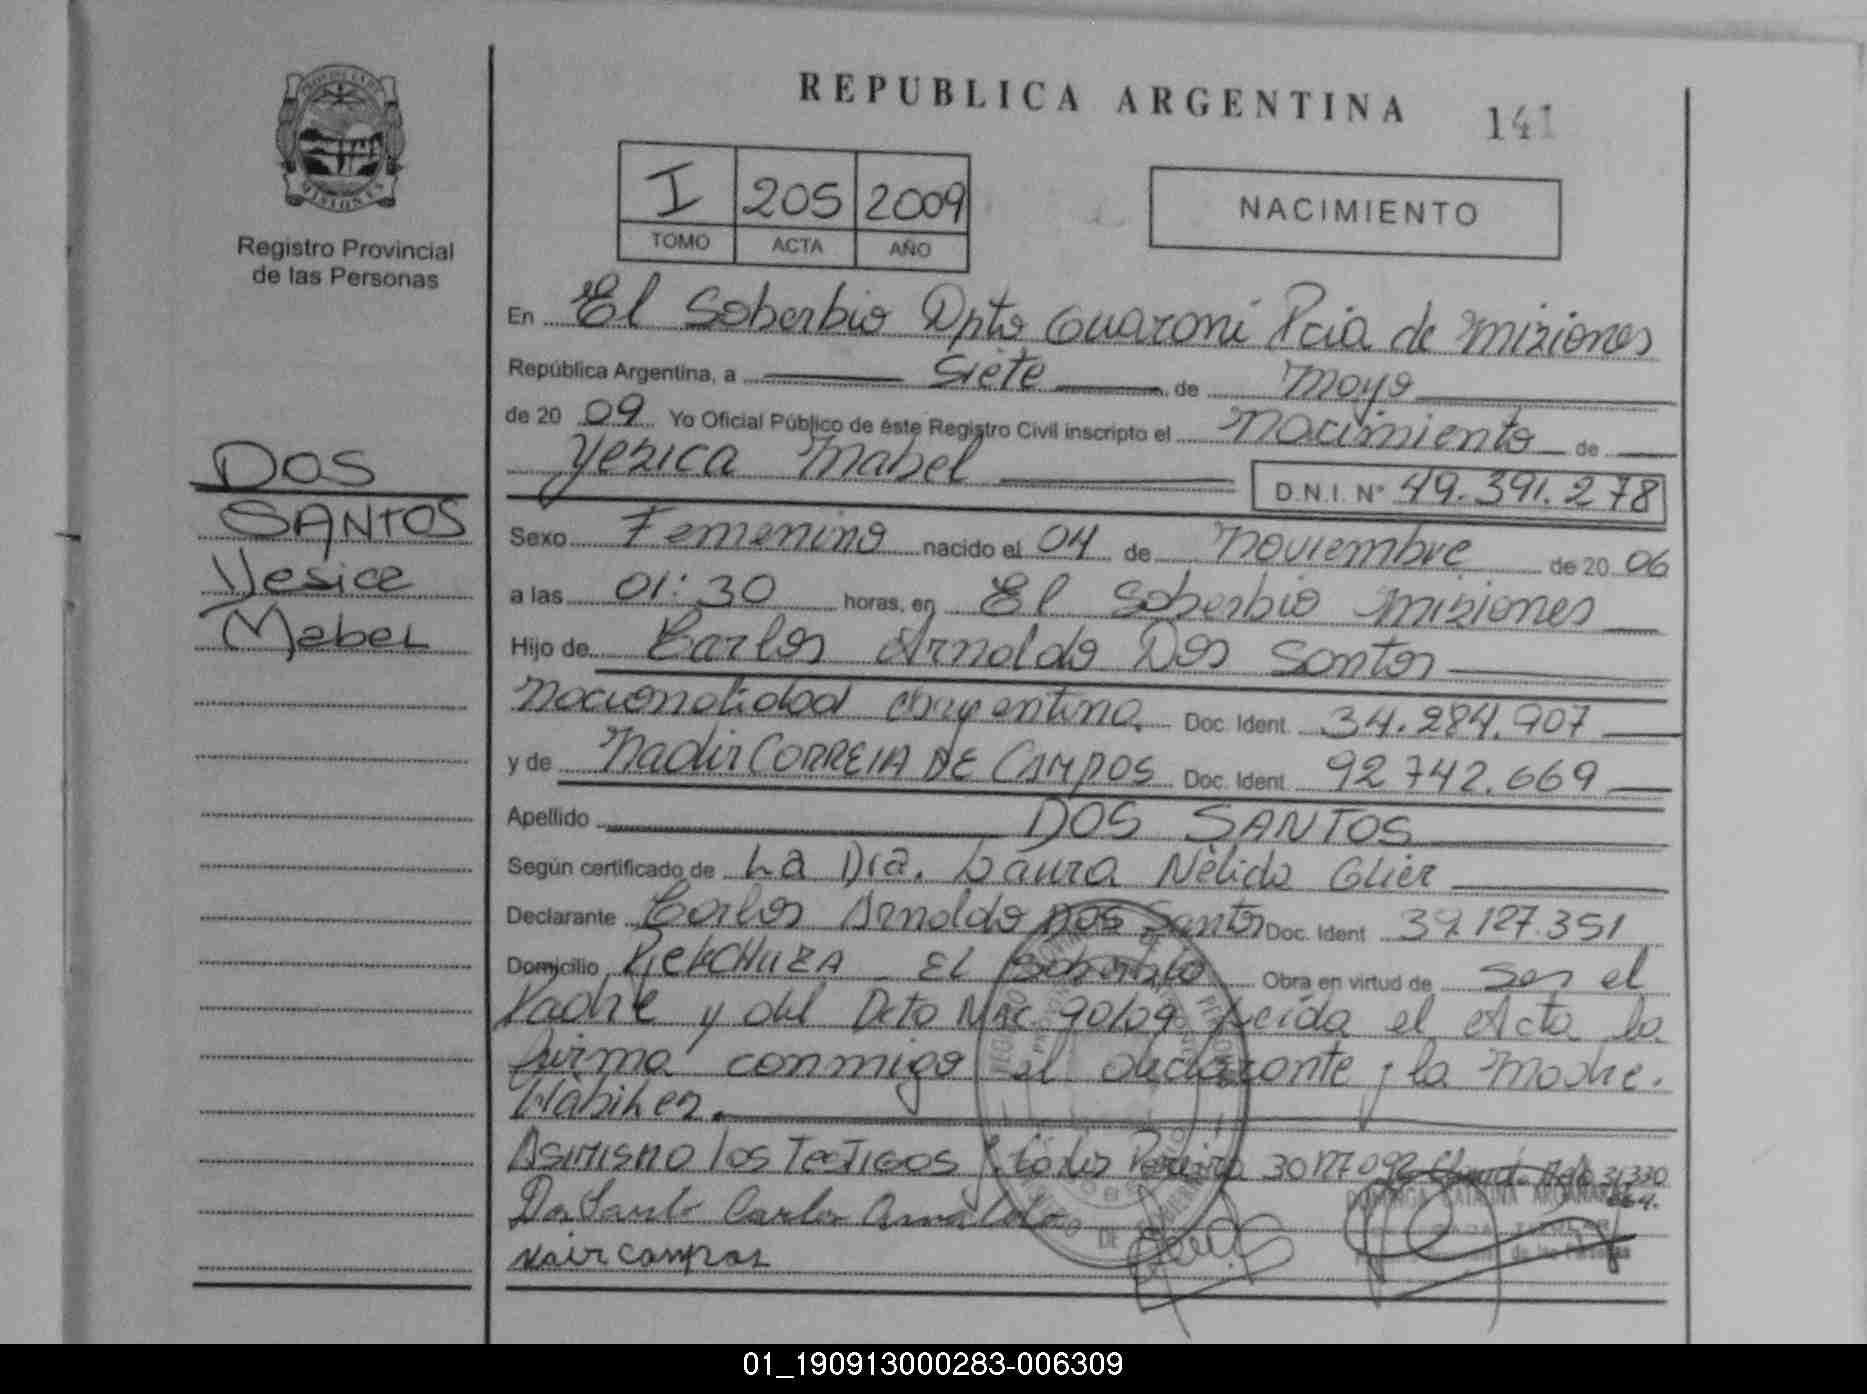 REPUBLICA ARGENTINA
141
Registro Provincial
de las Personas
I 205 2009
TOMO ACTA AÑO
NACIMIENTO
DOS
SANTOS
Yesica
Mabel
En El Soberbio Dpto Guaraní Pcia de Misiones
República Argentina, a siete de Mayo
de 20 09 Yo Oficial Público de éste Registro Civil inscripto el Nacimiento de
Yesica Mabel D.N.I. N° 49.391.278
Sexo Femenino nacido el 04 de Noviembre de 20 06
a las 01:30 horas, en El Soberbio Misiones
Hijo de Carlos Arnoldo Dos Santos
Nacionalidad Argentina Doc. Ident. 34.284.907
y de Nadir CORREIA DE CAMPOS Doc. Ident. 92.742.669
Apellido DOS SANTOS
Según certificado de La Dra. Laura Nélida Glier
Declarante Carlos Arnoldo Dos Santos Doc. Ident 39.127.351
Domicilio El Soberbio Obra en virtud de Ser el
Padre y del Dcto Nac. 90/09 Leída el Acta la
firma conmigo el declarante y la Madre.
Asimismo los Testigos 30127092 31330
664.
Dos Santos Carlos Arnaldo
Nair campos
01_190913000283-006309